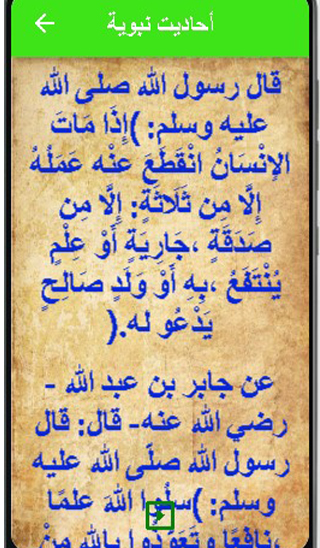 أحاديث نبوية
قال رسول الله صلى الله
عليه وسلم: )إِذَا مَاتَ
الإنْسَانُ انْقَطَعَ عنْه عَمَلُهُ
إِلَّا مِن ثَلَاثَةٍ: إِلَّا مِن
صَدَقَةٍ ،جَارِيَةٍ أَوْ عِلْمٍ
يُنْتَفَعُ ،بِهِ أَوْ وَلَدٍ صَالِحٍ
يَدْعُو له.(
عن جابر بن عبد الله -
رضي الله عنه- قال: قال
رسول الله صلّى الله عليه
وسلم: )سلُوا اللهَ علمًا
،نافعًا وتَعَوَّذُوا باللهِ منْ